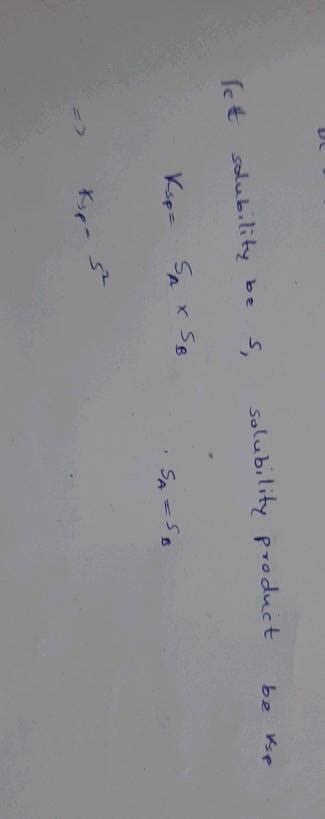 let solubility be S, solubility product be Ksp
Ksp = SA x SB , SA = SB
=> Ksp = S²